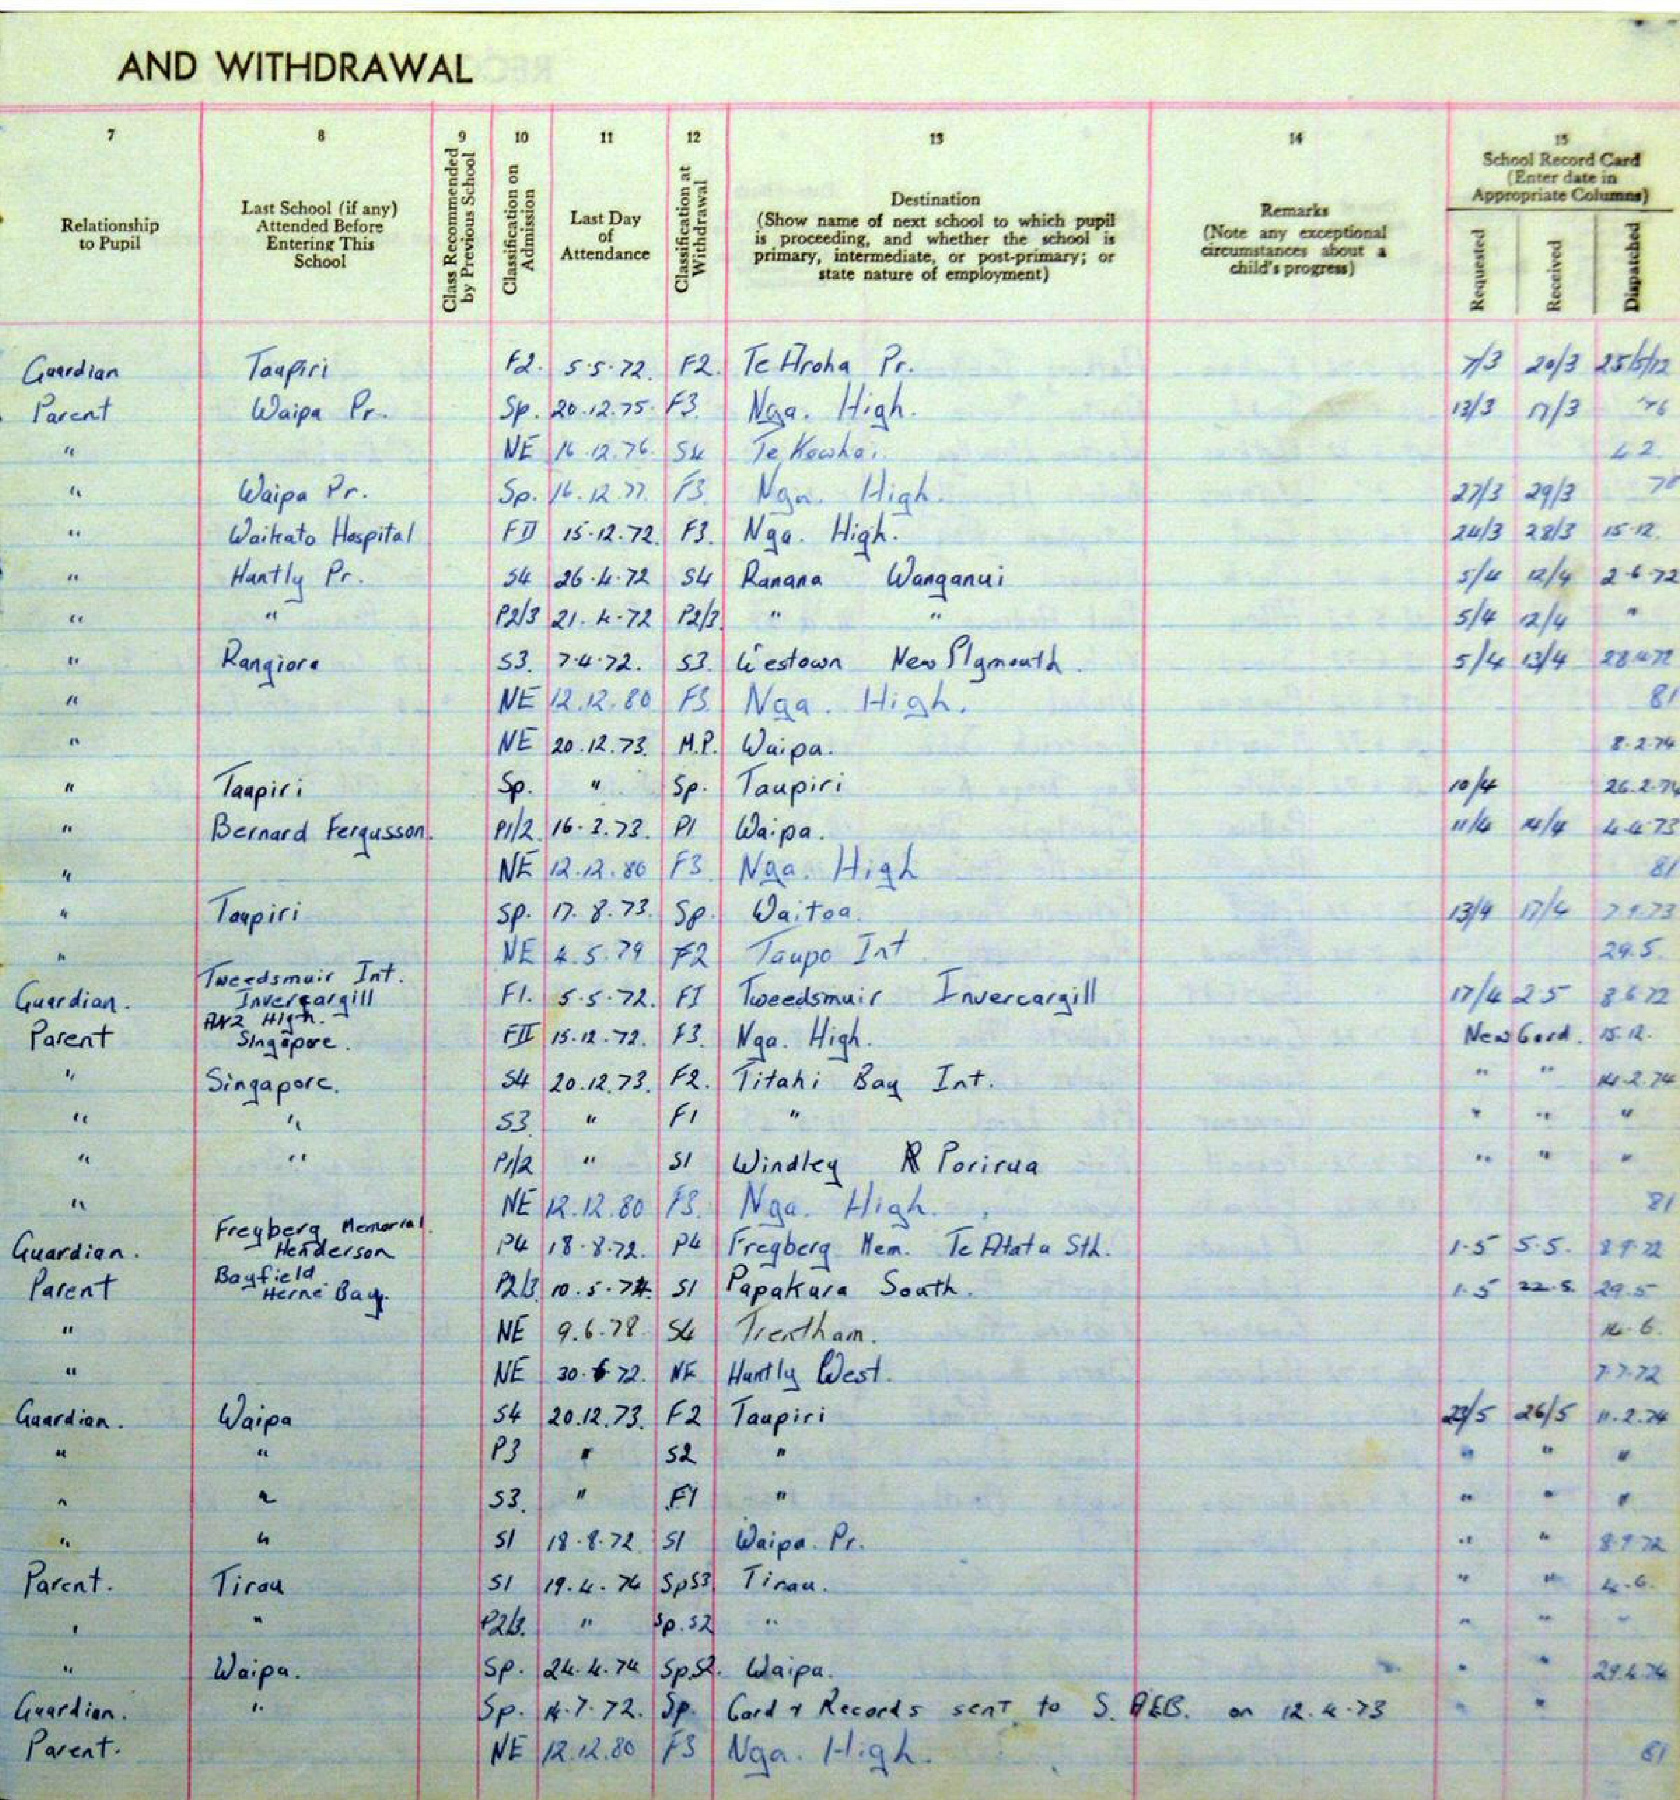 AND WITHDRAWAL
7 8 9 10 11 12 13 14 15
Relationship to Pupil
Last School (if any) Attended Before Entering This School
Class Recommended by Previous School
Classification on Admission
Last Day of Attendance
Classification at Withdrawal
Destination
(Show name of next school to which pupil is proceeding, and whether the school is primary, intermediate, or post-primary; or state nature of employment)
Remarks
(Note any exceptional circumstances about a child's progress)
School Record Card
(Enter date in Appropriate Columns)
Requested
Received
Dispatched
Guardian Taupiri F2. 5.5.72. F2. Te Aroha Pr. 7/3 20/3 25/5/72
Parent Waipa Pr. Sp. 20.12.75. F3. Nga. High. 13/3 17/3 '76
" NE 16.12.76. S4 Te Kowhai.
" Waipa Pr. Sp. 16.12.77. F3. Nga. High. 27/3 29/3 78
" Waikato Hospital FII 15.12.72. F3. Nga. High. 24/3 28/3 15.12.
" Huntly Pr. S4 26.4.72 S4 Ranana Wanganui 5/4 12/4 2.6.72
" " P2/3 21.4.72 P2/3 " " 5/4 12/4 "
" Rangiora S3. 7.4.72. S3. Westown New Plymouth. 5/4 13/4 28.4.72
" NE 12.12.80 F3 Nga. High. 81
" NE 20.12.73. M.P. Waipa. 8.2.74
" Taupiri Sp. " Sp. Taupiri 10/4 26.2.74
" Bernard Fergusson. P1/2 16.3.73. P1 Waipa. 11/4 14/4 4.4.73
" NE 12.12.80 F3 Nga. High 81
" Taupiri Sp. 17.8.73. Sp. Waitoa. 13/4 17/4 7.9.73
" NE 4.5.79 F2 Taupo Int 29.5.
Tweedsmuir Int.
Guardian. Invercargill F1. 5.5.72. FI Tweedsmuir Invercargill 17/4 2.5 8.6.72
ANZ High.
Parent Singapore. FII 15.12.72. F3. Nga. High. New Card. 15.12.
" Singapore. S4 20.12.73. F2. Titahi Bay Int. " " 14.2.74
" " S3. " F1 " " " "
" " P1/2 " S1 Windley Porirua " " "
" NE 12.12.80 F3. Nga. High. 81
Freyberg Memorial.
Guardian. Henderson P4 18.8.72. P4 Freyberg Mem. Te Atatu Sth. 1.5 5.5. 8.9.72
Bayfield.
Parent Herne Bay. P2/3 10.5.74. S1 Papakura South. 1.5 22.5. 29.5
" NE 9.6.78. S4 Trentham. 14.6.
" NE 30.6.72. NE Huntly West. 7.7.72
Guardian. Waipa S4 20.12.73. F2 Taupiri 23/5 26/5 11.2.74
" " P3 " S2 " " " "
" " S3. " F1 " " " "
" " S1 18.8.72 S1 Waipa. Pr. " " 8.9.72
Parent. Tirau S1 19.4.74 SpS3 Tirau. " " 4.6.
" " P2/3. " Sp.S2 " " " "
" Waipa. Sp. 24.4.74 Sp.S2. Waipa. " " 29.4.74
Guardian. " Sp. 14.7.72. Sp. Card & Records sent to S. AEB. on 12.4.73 " "
Parent. NE 12.12.80 F3 Nga. High. 81